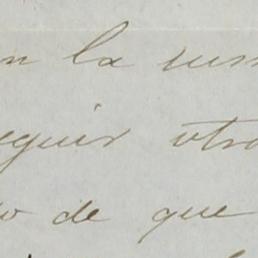 n la
eguir otra
o de que